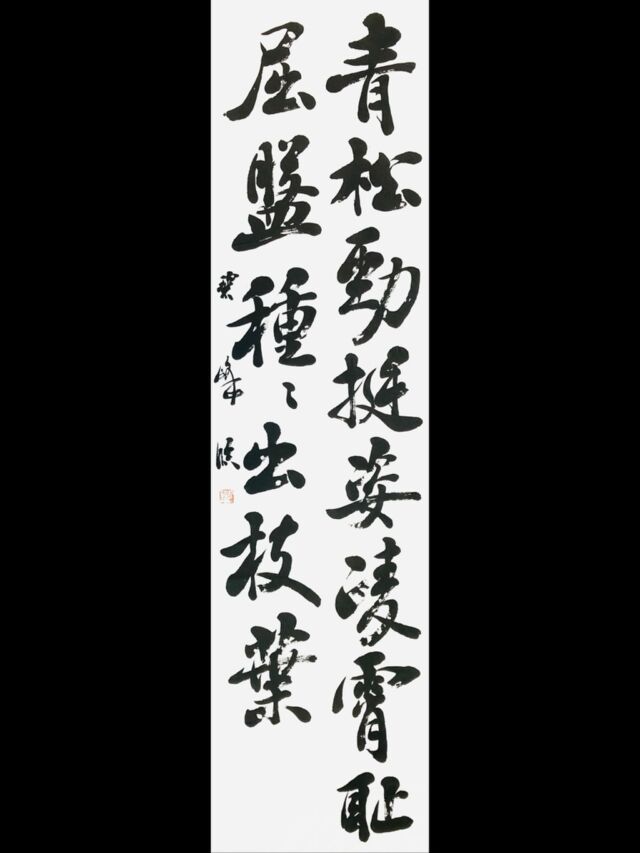 青松勁挺姿凌霄耻
屈盤種〻出枝葉
臨